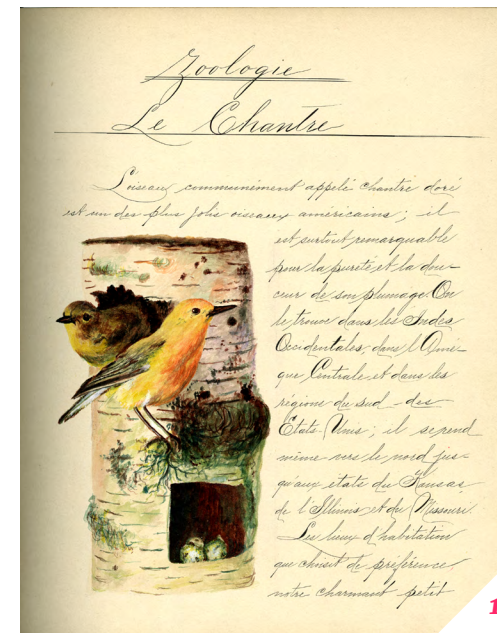 Zoologie
Le Chantre
L'oiseau communément appelé chantre doré
est un des plus jolis oiseaux américains ; il
est surtout remarquable
pour la pureté et la dou-
ceur de son plumage. On
le trouve dans les Indes
Occidentales, dans l'Amé-
rique Centrale et dans les
régions du sud des
États-Unis ; il se rend
même vers le nord jus-
qu'aux états du Kansas,
de l'Illinois et du Missouri.
Les lieux d'habitation
que choisit de préférence,
notre charmant petit
1